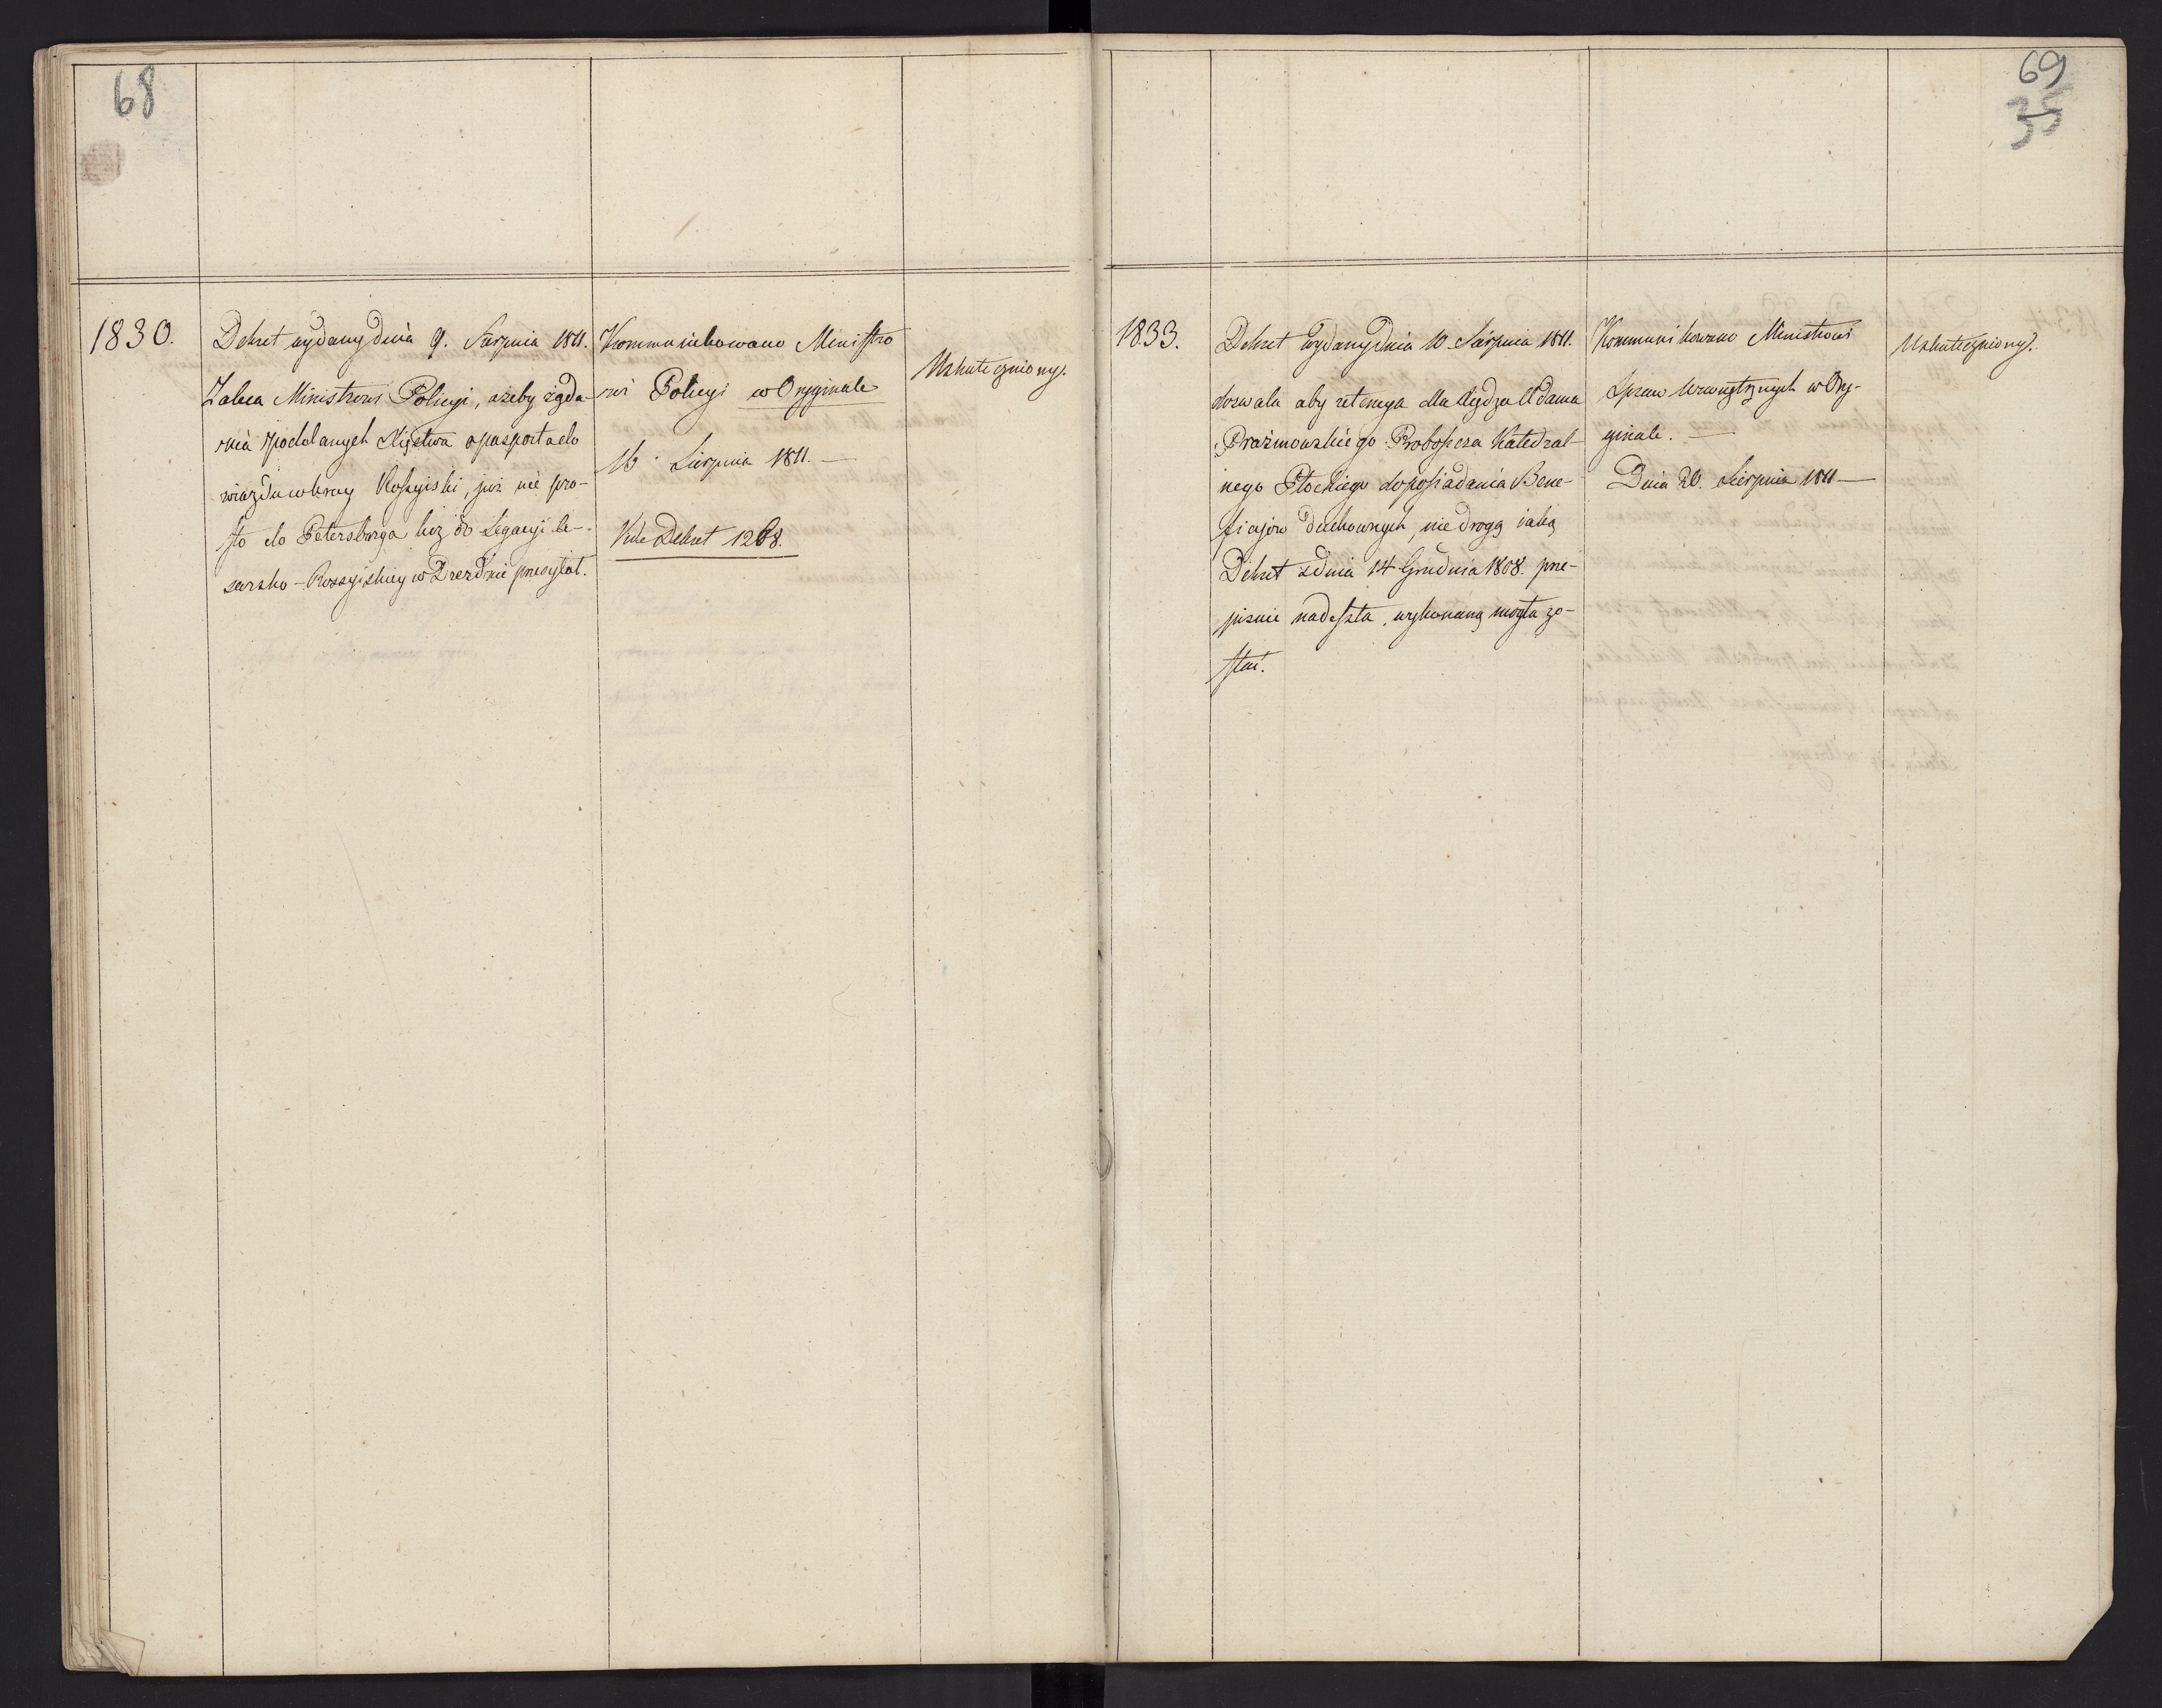 68
1830.
Dekret wydany dnia 9. Sierpnia 1811.
Zaleca Ministrowi Policyi, ażeby żąda-
nia poddanych Xięstwa o pasporta do
wiazdu w kray Rossyiski, już nie pro-
sto do Petersburga lecz do Legacyi Ce-
sarsko-Rossyiskiey w Dreznie przesyłał.
Kommunikowano Ministro
wi Policyi w Oryginale
16. Sierpnia 1811. —
Vide Dekret 1268.
Uskuteczniony.
69
35
1833.
Dekret wydany dnia 10 Sierpnia 1811.
dozwala aby retenya dla Xiędza Adama
Prażmowskiego Proboszcza Katedral-
nego Płockiego do posiadania Bene-
ficjów duchownych, nie drogą iaką
Dekret z dnia 14 Grudnia 1808. prze-
pisuie nadeszła, wykonaną mogła zo-
stać.
Kommunikowano Ministrowi
Spraw Wewnętrznych w Ory-
ginale. —
Dnia 20. Sierpnia 1811 —
Uskuteczniony.